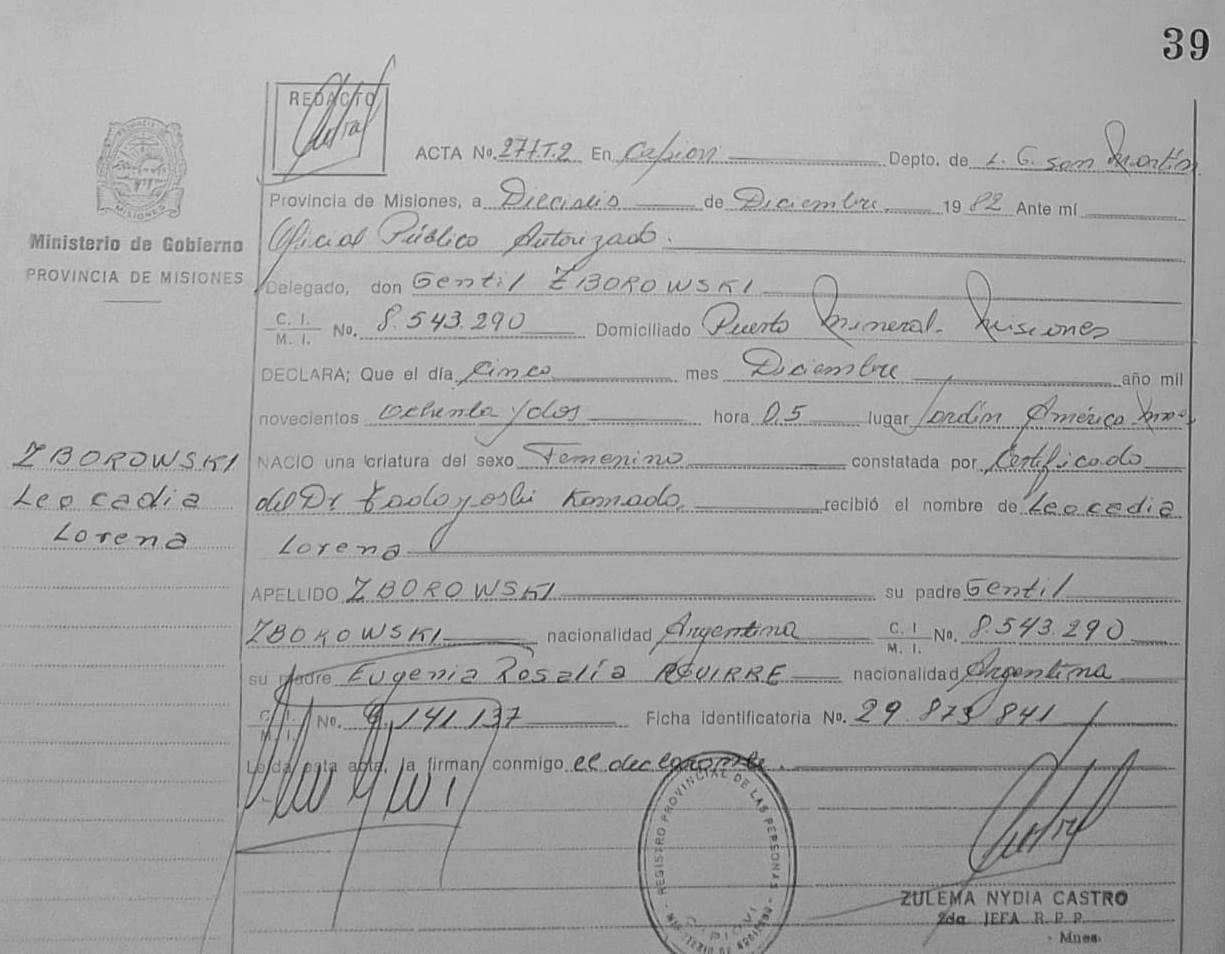 39
REDACTO
ACTA No. 277.T.2 En Capiovi Depto. de L. G. San Martín
Provincia de Misiones, a Dieciséis de Diciembre 1982 Ante mí
MISIONES
Ministerio de Gobierno
PROVINCIA DE MISIONES
Oficial Público Autorizado.
Delegado, don Gentil ZBOROWSKI
C. I. M. I. No. 8.543.290 Domiciliado Puerto Mineral- Misiones
DECLARA; Que el día cinco mes Diciembre año mil
novecientos ochenta y dos hora 0.5 lugar Jardín América
ZBOROWSKI
Leocadia
Lorena
NACIO una criatura del sexo Femenino constatada por Certificado
del Dr recibió el nombre de Leocadia
Lorena
APELLIDO ZBOROWSKI su padre Gentil
ZBOROWSKI nacionalidad Argentina C. I M. I. No. 8.543.290
su madre Eugenia Rosalía AGUIRRE nacionalidad Argentina
C. I. M. I. No. 141.137 Ficha identificatoria No. 29.873.841
Leída esta acta, la firman conmigo el declarante.
REGISTRO PROVINCIAL DE LAS PERSONAS - MINISTERIO DE GOBIERNO
CAPIOVI
ZULEMA NYDIA CASTRO
2da. JEFA R. P. P.
- Mnes.